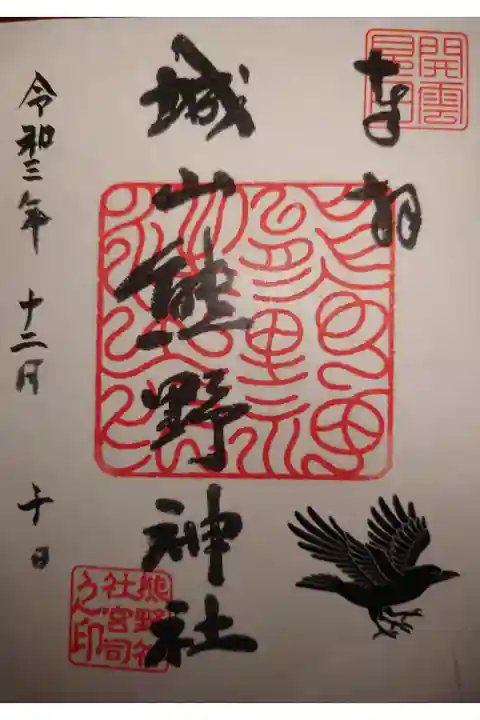 開雲
奉拝
城山熊野神社
熊野神
社宮司
之印
令和三年 十二月 十日